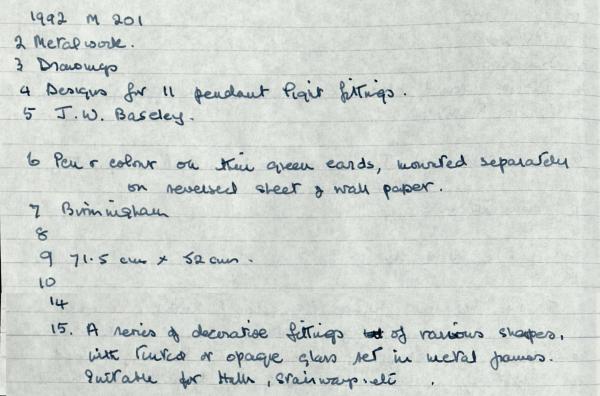 1992 M 201
2 Metalwork.
3 Drawings
4 Designs for 11 pendant light fittings.
5 J.W. Baseley.
6 Pen & colour on thin green cards, mounted separately
on reversed sheet of wall paper.
7 Birmingham
8
9 71.5 cm x 52 cm.
10
14
15. A series of decorative fittings of various shapes,
with tinted or opaque glass set in metal frames.
Suitable for Halls, stairways, etc.